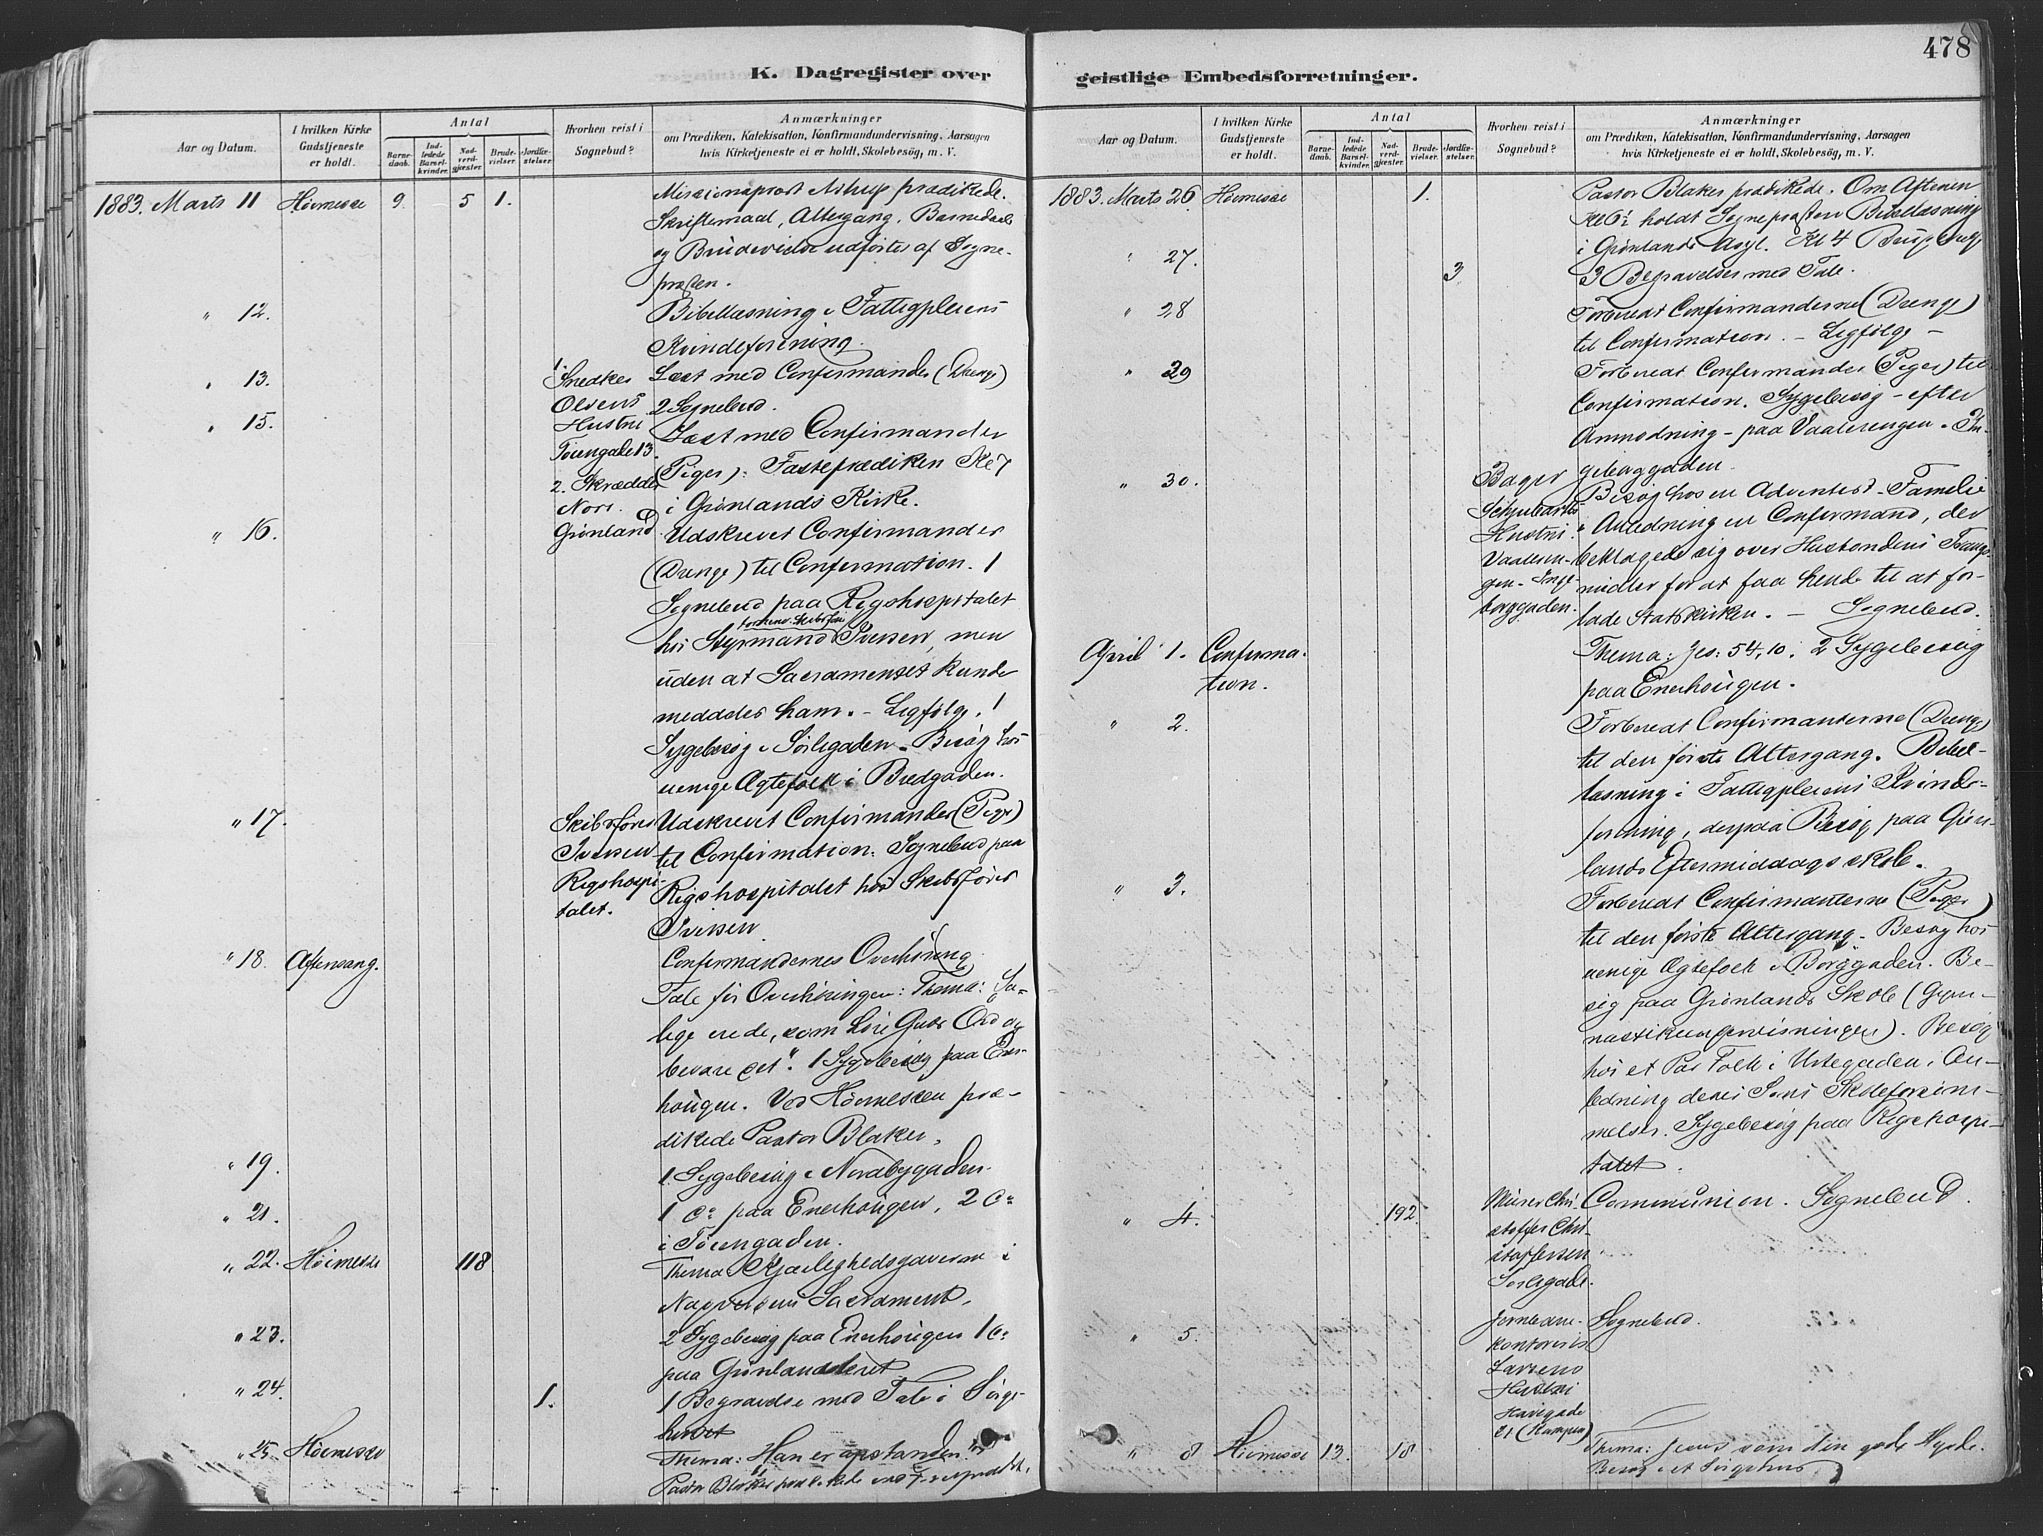 478
K. Dagregister over geistlige Embedsforretninger.
Aar og Datum.
I hvilken Kirke Gudstjeneste er holdt.
Antal
Barnedaab.
Indledede Barselkvinder.
Nadverdgjæster.
Brudevielser.
Jordfæstelser.
Hvorhen reist i Sognebud?
Anmærkninger
om Prædiken, Katekisation, Konfirmandundervisning, Aarsagen
hvis Kirketjeneste ei er holdt, Skolebesøg, m. V.
1883. Marts 11 Høimesse 9. 5 1.
Missionspræst Astrup prædikede.
Skriftemaal, Altergang, Barnedaab
og Brudevielse udførtes af Sogne-
præsten.
" 12.
Bibellæsning i Fattigpleiens
Kvindeforening.
" 13.
1. Snedker
Olsens
Hustru
Tøiengade 13.
2. Skrædder
Nors.
Grønland
Læst med Confirmander (Drenge)
2 Sognebud.
" 15.
Læst med Confirmander
(Piger). Fasteprædiken Kl 7
i Grønlands Kirke.
" 16.
Udskrevet Confirmander
(Drenge) til Confirmation. 1
Sognebud paa Rigshospitalet
hos Styrmand Iversen, men
uden at Sacramentet kunde
meddeles ham. - Ligfølge. 1
Sygebesøg i Sørligaden. Besøg hos
uenige Ægtefolk i Bredgaden.
" 17.
Skibsfører
Iversen
Rigshospi-
talet.
Udskrevet Confirmander (Piger)
til Confirmation. Sognebud paa
Rigshospitalet hos Skibsfører
Iversen
" 18. Aftensang.
Confirmandernes Overhøring
Tale før Overhøringen: Thema: Sa-
lige ere de, som høre Guds Ord og
bevare det". 1 Sygebesøg paa Ener-
hougen. Ved Høimessen præ-
dikede Pastor Blaker.
" 19.
1 Sygebesøg i Nordbygaden.
" 21.
1 do paa Enerhougen, 2 do
i Tøiengaden.
" 22. Høimesse 118
Thema: Kjærlighedsgaverne i
Nadverdens Sacrament.
" 23.
2 Sygebesøg paa Enerhougen 1 do
paa Grønlandsleret
" 24. 1.
1 Begravelse med Tale i Sørge-
huset
" 25. Høimesse
Thema: Han er opstanden".
Pastor Blaker prædikede
1883. Marts 26 Høimesse 1.
Pastor Blaker prædikede. Om Aftenen
Kl 6½ holdt Sognepræsten Bibellæsning
i Grønlands Asyl. Kl 4
" 27. 3
3 Begravelser med Tale.
" 28
Forberedt Confirmanderne (Drenge)
til Confirmation. - Ligfølge -
" 29
Forberedt Confirmander (Piger) til
Confirmation. Sygebesøg - efter
Anmodning - paa Vaalerengen. In-
geborggaden.
" 30.
Bager
Schubarths
Hustru
Vaaleren-
gen. Inge-
borggaden.
Besøg hos en Adventist-Familie
i Anledning en Confirmand, der
beklagede sig over Husbondens Tvangs-
midler for at faa hende til at for-
lade Statskirken. - Sognebud.
April 1. Confirma-
tion.
Thema: Jes: 54, 10. 2 Sygebesøg
paa Enerhougen.
" 2.
Forberedt Confirmanterne (Drenge)
til den første Altergang. Bibel-
læsning i Fattigpleiens Kvinde-
forening, derpaa Besøg paa Grøn-
lands Eftermiddagsskole.
" 3.
Forberedt Confirmanterne (Piger)
til den første Altergang. Besøg hos
uenige Ægtefolk i Borggaden. Be-
søg paa Grønlands Skole (Gym-
nastikundervisningen). Besøg
hos et Par Folk i Urtegaden, i An-
ledning deres Søns Skoleforsøm-
melser. Sygebesøg paa Rigshospi-
talet.
" 4. 192.
Murer Chri-
stoffer Chri-
stoffersen
Sørligade.
Communion. Sognebud.
" 5.
Jernbane-
kontorist
Larsens
Hustru
Havegade
21 (Kampen)
Sognebud.
" 8 Høimesse 13. 18
Thema: Jesus som den gode Hyrde.
Besøg i et Sørgehus